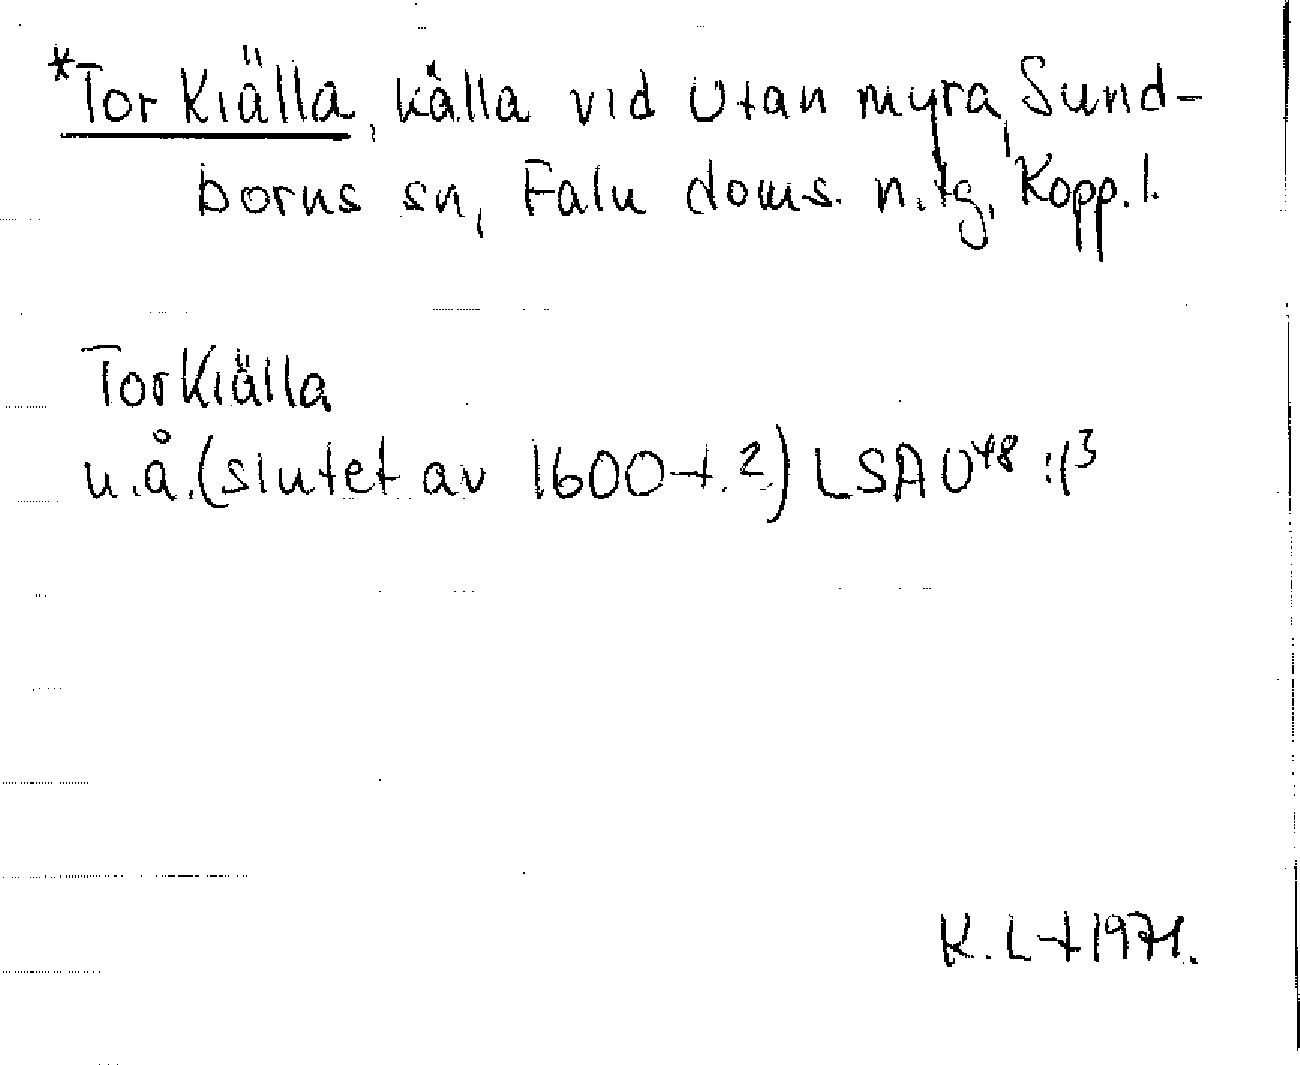 *Tor Kiälla, källa vid Utanmyra, Sund-
borns sn, Falu doms. n.tg, Kopp.l.
Tor Kiälla
u.å. (slutet av 1600-t.?) LSA U48 :1/3
K. L-t 1971.